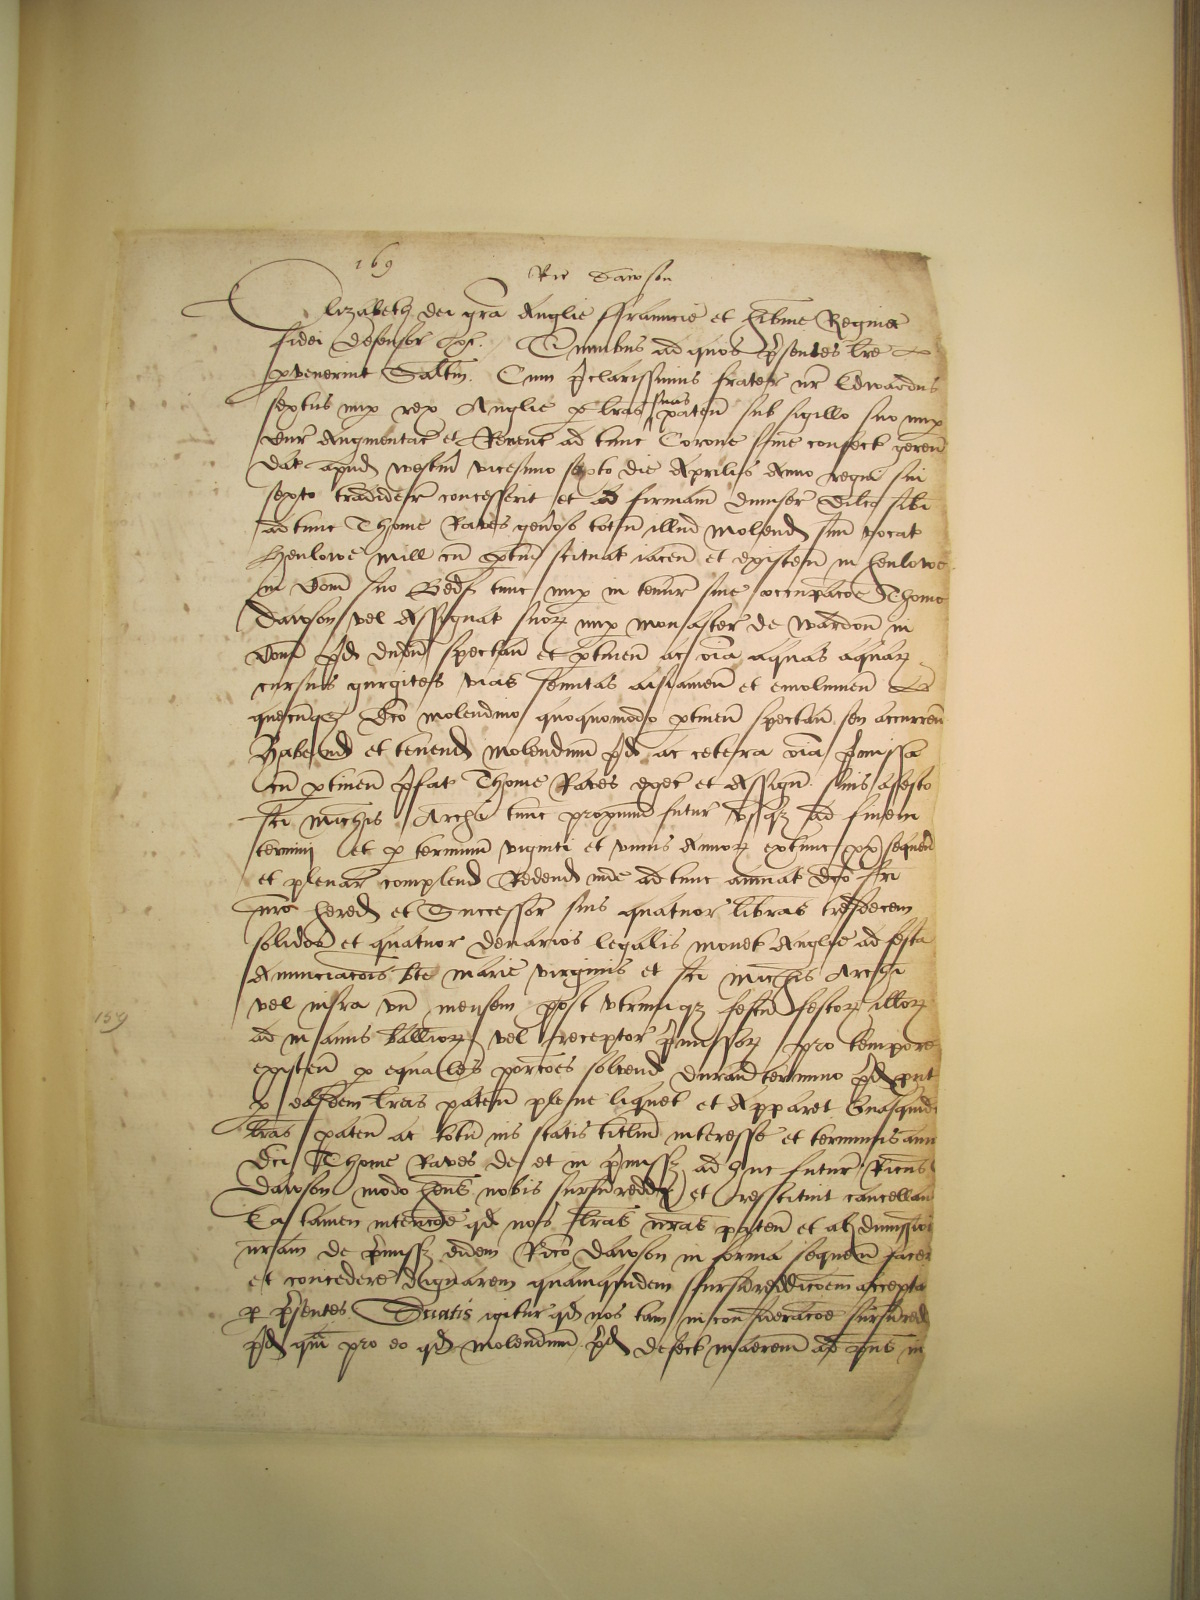 169
Ric Dawson
Elizabeth dei gra Anglie ffrauncie et hibnie Regina
fidei defensor &c. Omnibus ad quos psentes lre
pvenerint Saltm. Cum pclarissimus frater nr Edwardus
sextus nup rex Anglie p lras suas paten sub sigillo suo nup
Cur Augmentac et Revenc ad tunc Corone sue confect geren
dat apud westm vicesimo sexto die Aprilis Anno regni sui
septo tradider concesserit et ad firmam dimiser Dilco sibi
ad tunc Thome Raves genos totum illud molend suu vocat
Henlowe mill cu ptin scituat iacen et existen in henlowe
in Com suo Bedf tunc nup in tenur sive occupacoe Thome
Dawson vel Assignat suor nup monaster de wardon in
Com pd dudu spectan et ptinen ac oia aquas aquar
cursus gurgites vias semitas aisiamen et emolumen
quecunq dco molendino quoquomodo ptinen spectan seu accurren
Habend et tenend molendinum pd ac cetera oia pmissa
cu ptinen pfat Thome Raves execut et Assign suis a festo
sci Michis Archi tunc proximo futur usq ad finem
termini et p terminum viginti et unius Annor extunc px sequen
et plenar complend Redend inde ad tunc annuat dco fri
nro hered et Successor suis quatuor libras tresdecem
solidos et quatuor denarios legalis monet Anglie ad festa
Annunciacois bte marie virginis et sci Michis Archi
vel infra un mensem post utrumq festu festor illor
ad manus ballivor vel receptor pmissor pro tempore
existen p equales porcoes solvend durand termino pd put
p easdem lras paten plene liquet et Apparet Quasquid
lras paten ac totu ius statu titlum interesse et terminu ann
dci Thome Raves de et in pmiss ad huc futur Ricus
Dawson modo hens nobis sursumreddit et restituit cancelland
Ea tamen intencoe qd nos lras nras paten et al dimissioe
nram de pmiss eidem Rico Dawson in forma sequen facer
et concedere dignarem quamquidem sursumreddicoem accepta
p psentes Sciatis igitur qd nos tam in consideracoe sursured
pd qm pro eo qd molendinum pd defect maerem ad pns in
159